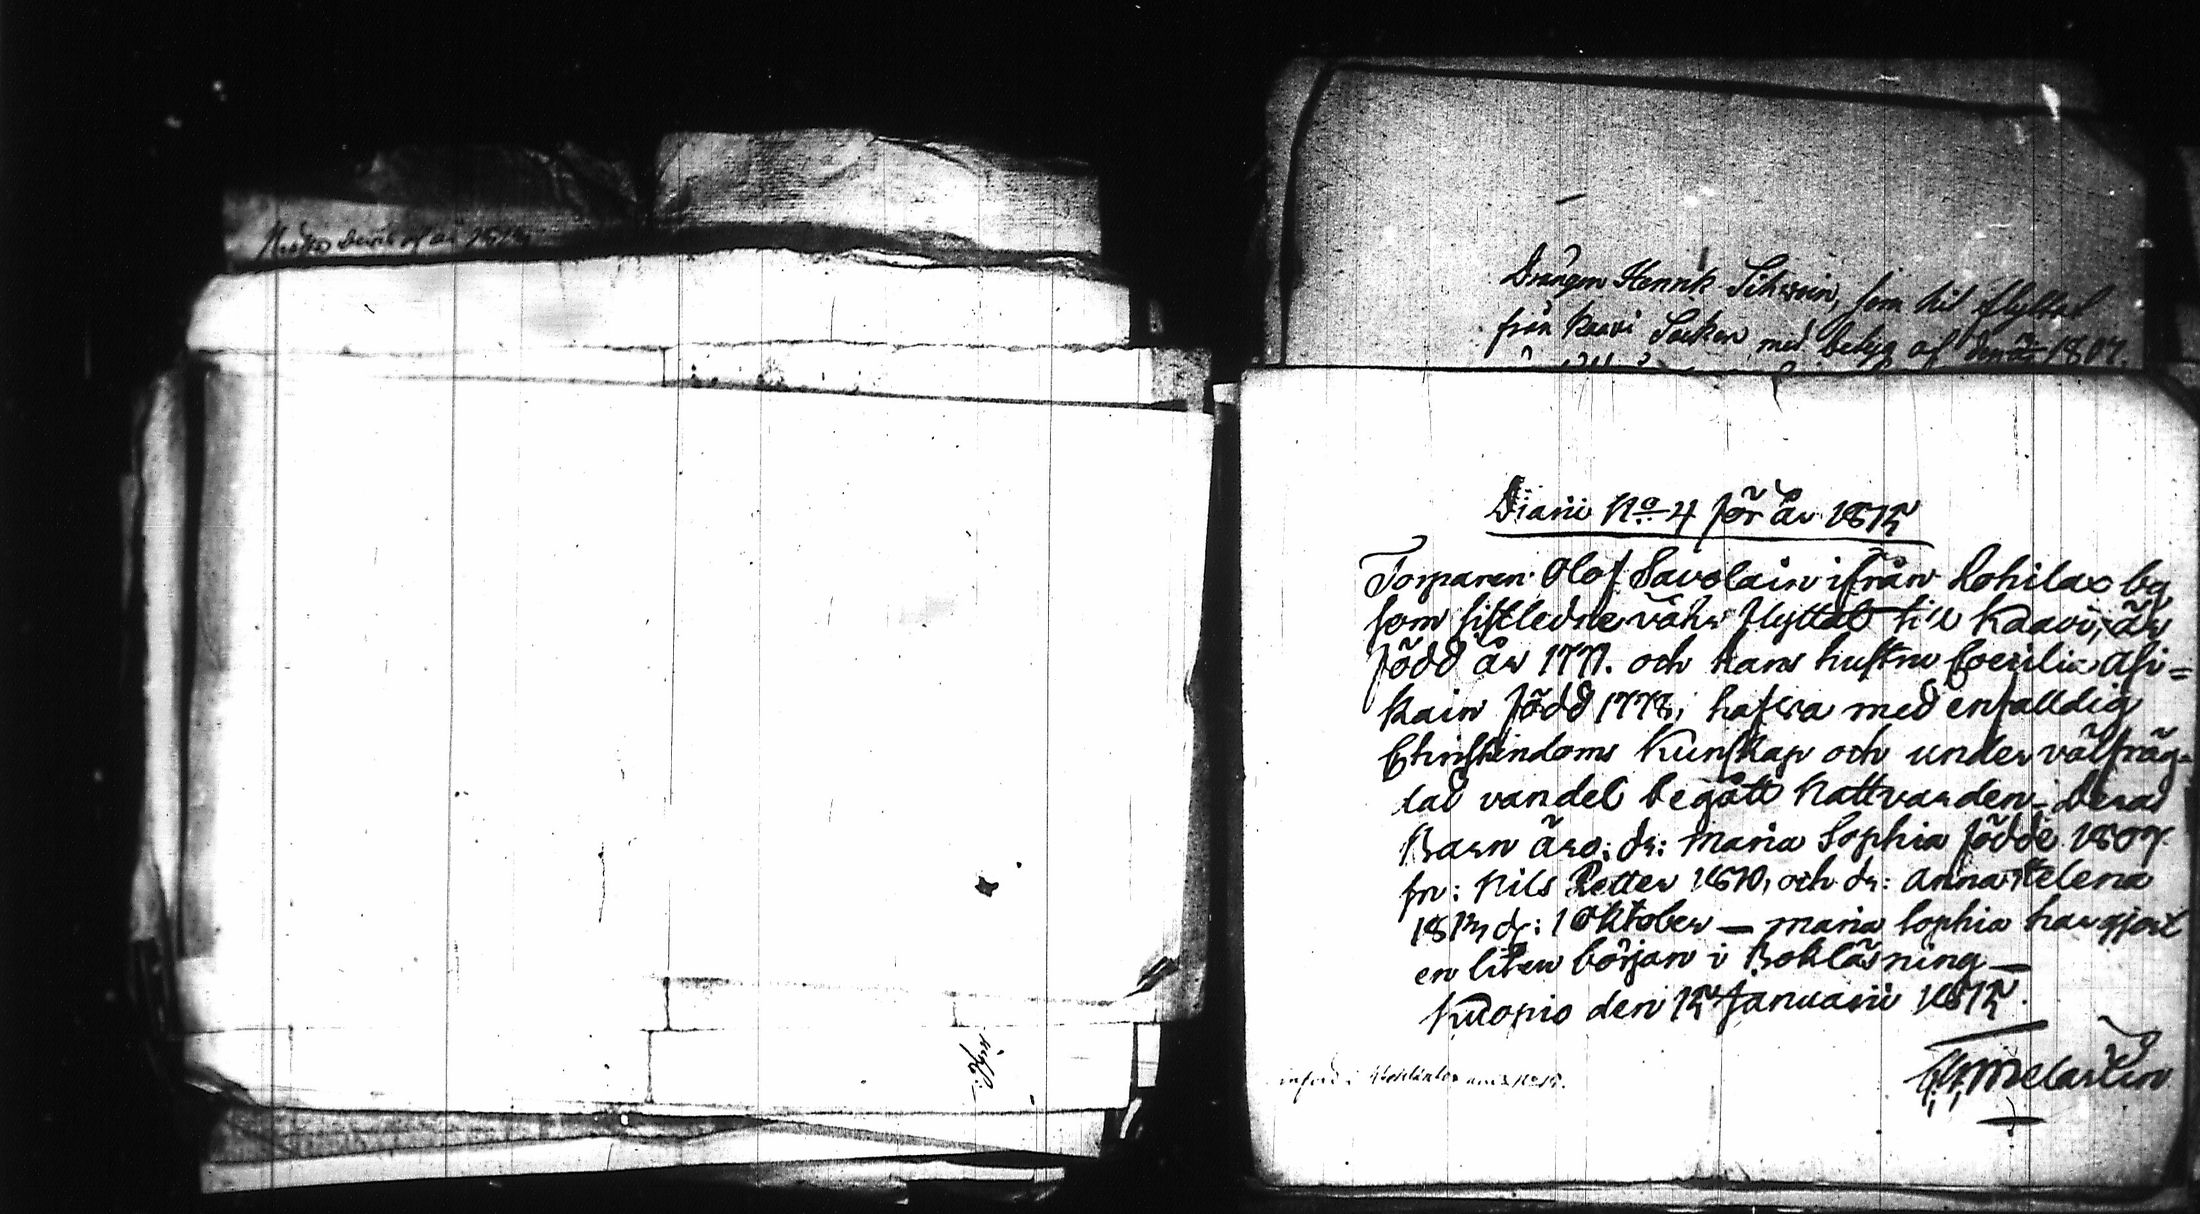 Drängen Henrik Sihvoin, som hit flyttat
från Kaavi Socken med betyg af den 1807.
Diarii No 4 för år 1815
Torparen Olof Savolain ifrån Lohilax by
som sistledne våhr flyttat till Kaavi, är
född år 1771. och hans hustru Coecilia Asi=
kain född 1778, hafwa med enfalldig
Christendoms kunskap och under välfräg-
dad vandel begått Nattvarden. Deras
Barn äro: dr: Maria Sophia födde 1807.
sn: Nils Petter 1810, och dr: Anna Helena
181 d: 1 Oktober — Maria Sophia har gjort
en liten början i Bokläsning —
Kuopio den 15 Januarii 1815.
Melartin